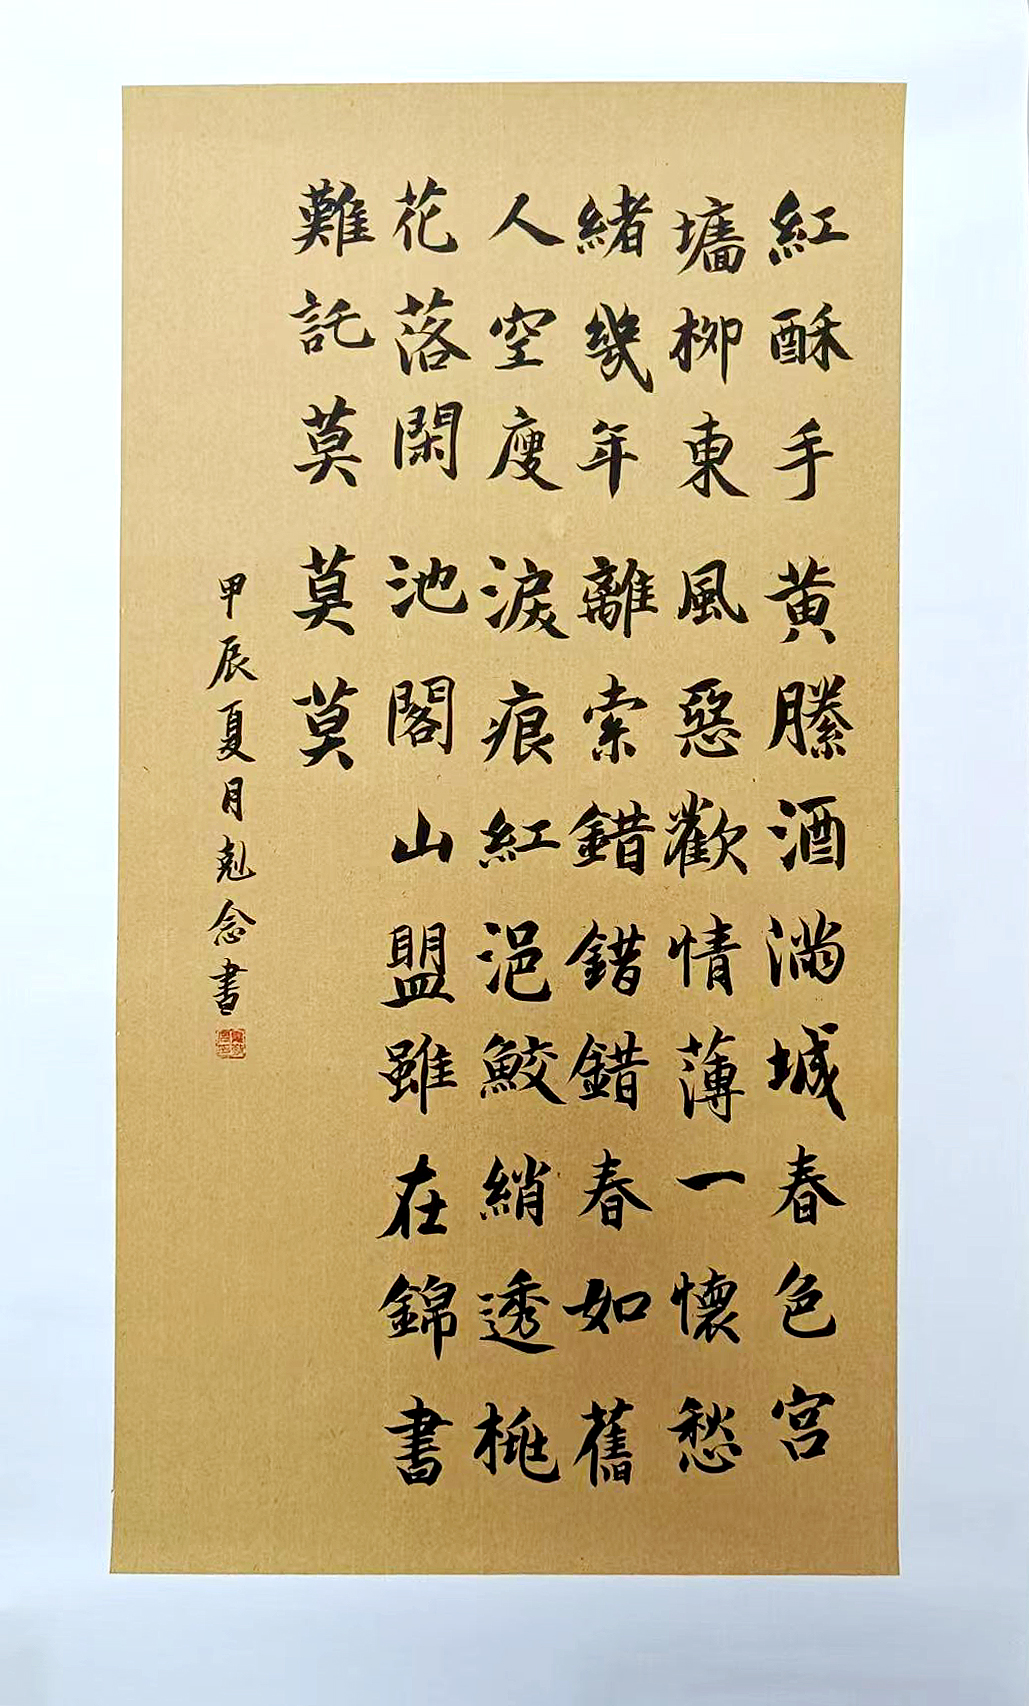 紅酥手黄縢酒滿城春色宫
墻柳東風惡歡情薄一懷愁
緒幾年離索錯錯錯春如舊
人空廋淚痕紅浥鮫綃透桃
花落閑池閣山盟雖在錦書
難託莫莫莫
甲辰夏月剋念書